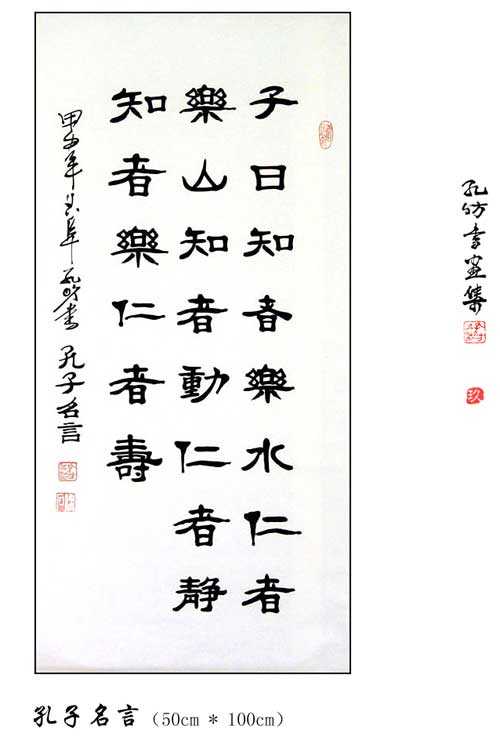 子曰知者樂水仁者
樂山知者動仁者静
知者樂仁者壽
甲午年曲阜孔昉書孔子名言
孔昉書畫集
玖
孔子名言（50cm * 100cm）